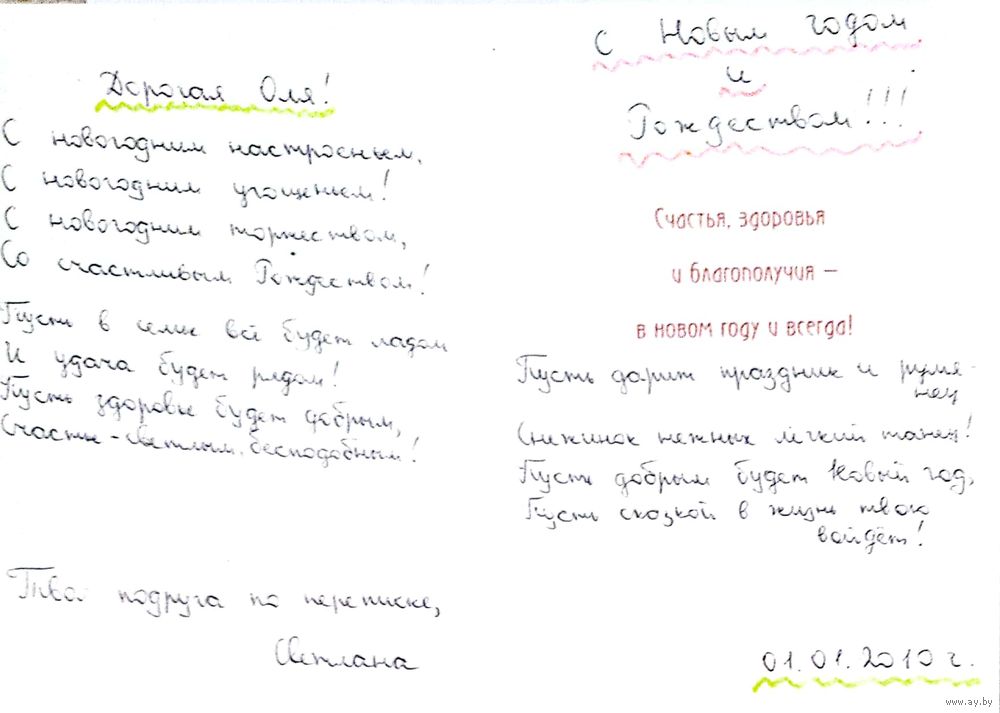 Дорогая Оля!
С новогодним настроеньем,
С новогодним угощеньем!
С новогодним торжеством,
Со счастливым Рождеством!
Пусть в семье всё будет ладом
И удача будет рядом!
Пусть здоровье будет добрым,
Счастье - светлым, бесподобным!
Твоя подруга по переписке,
Светлана
С Новым годом
и
Рождеством!!!
Счастья, здоровья
и благополучия –
в новом году и всегда!
Пусть дарит праздник и румя-
нец
Снежинок нежных лёгкий танец!
Пусть добрым будет Новый год,
Пусть сказкой в жизнь твою
войдёт!
01.01.2010 г.
www.ay.by